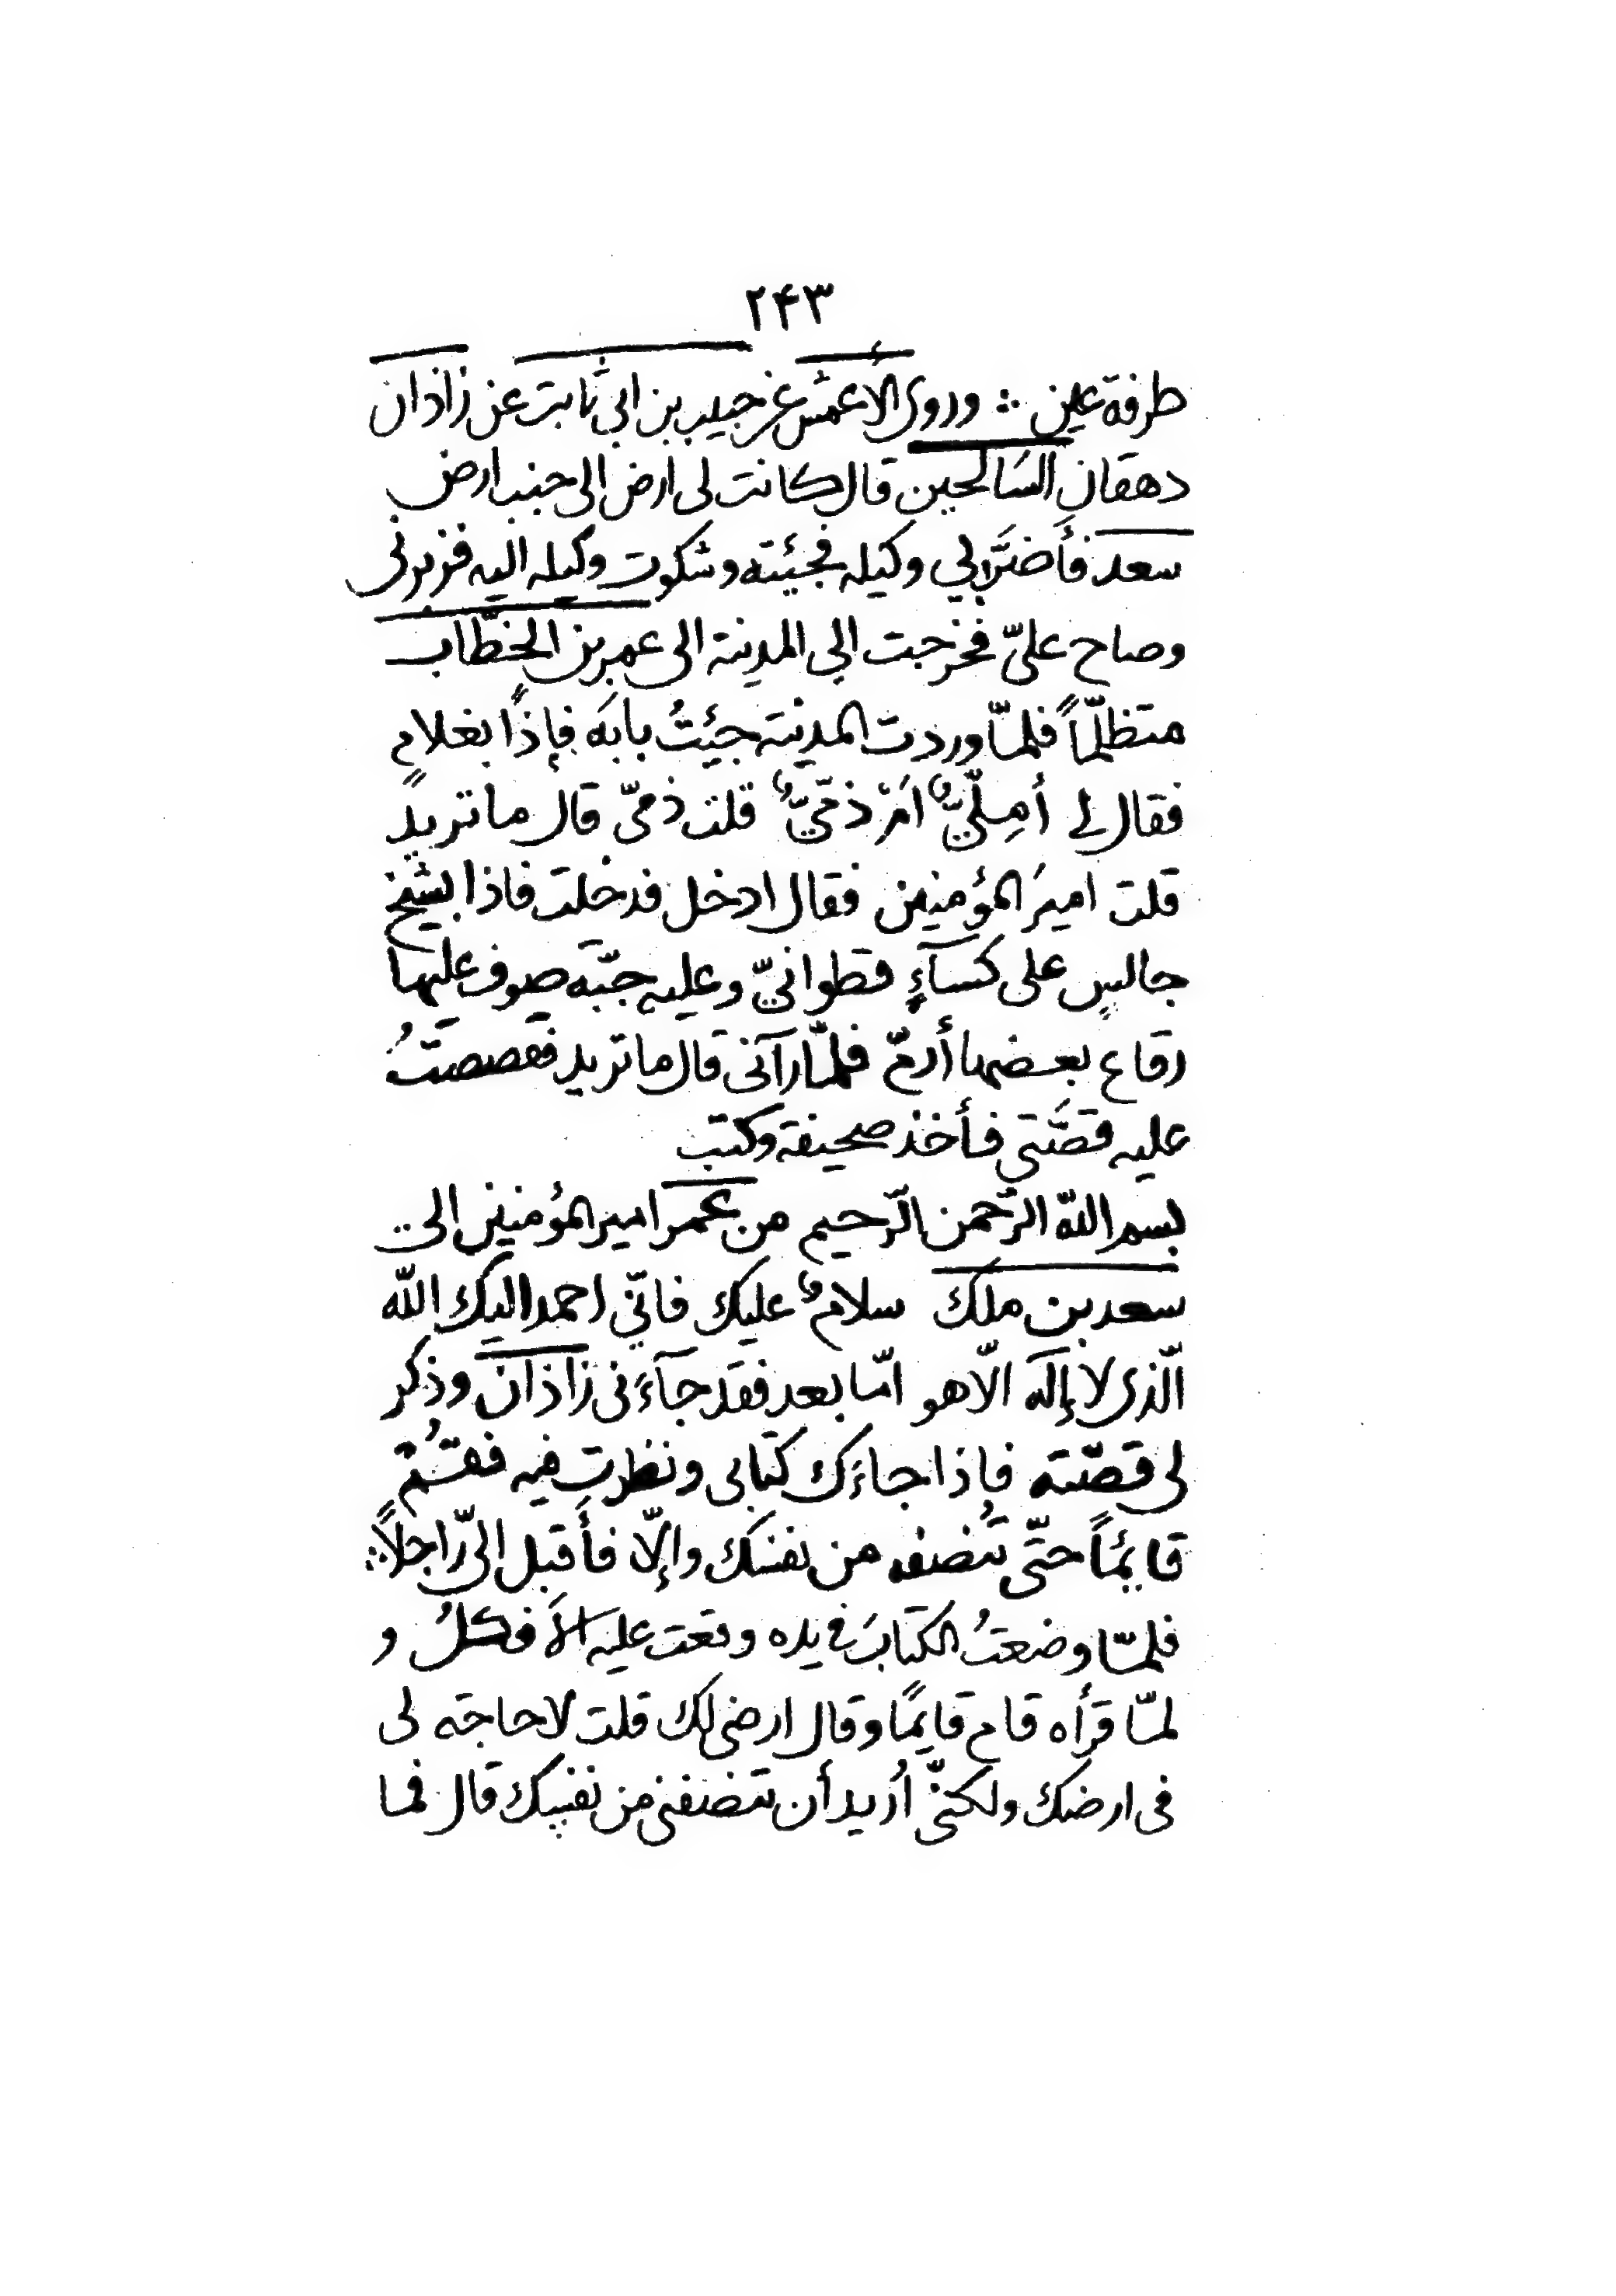 ۲۴۳
طرفة عين ∴ وروى الأعمش عن حبيب بن ابي ثابت عن زاذان
دهقان السَالحين قال كانت لى ارض الى جنب ارض
سعد فأضَرَّ بي وكيله فجئته وشكوت وكيله اليه فزبرنى
وصاح علىّ فخرجت الى المدينة الى عمر بن الخطّاب
متظلّماً فلمّا وردت المدينة جئتُ بابَه فإذاً بغلامٍ
فقال لى أمِلّيٌّ اَمْ ذمّيٌّ قلت ذمىّ قال ما تريد
قلت اميرَ المؤمنين فقال ادخل فدخلت فاذا بشيخ
جالسٍ على كسآءٍ قطوانيّ وعليه جبّة صوف عليها
رقاع بعضها أدمٌ فلمّا رآنى قال ما تريد فقصصتُ
عليه قصَّتي فأخذ صحيفة وكتب
بسم اللّه الرّحمن الرّحيم من عمر امير المؤمنين الى
سعد بن ملك سلامٌ عليك فانّي احمد اليك اللّه
الّذى لا إله الّا هو امّا بعد فقد جآءنى زاذان وذكر
لى قصّته فاذا جاءَك كتابى ونظرت فيه فقُم
قايئماً حتّى تُنصفه من نفسك وإلّا فأقبل الىّ راجلاً ∴
فلمّا وضعتُ الكتابَ فى يده وقعت عليه الأفكلُ و
لمّا قرأه قام قايمًا وقال ارضى لك قلت لا حاجة لى
فى ارضك ولكنّى اُريد أن تنصفنى من نفسك قال فما